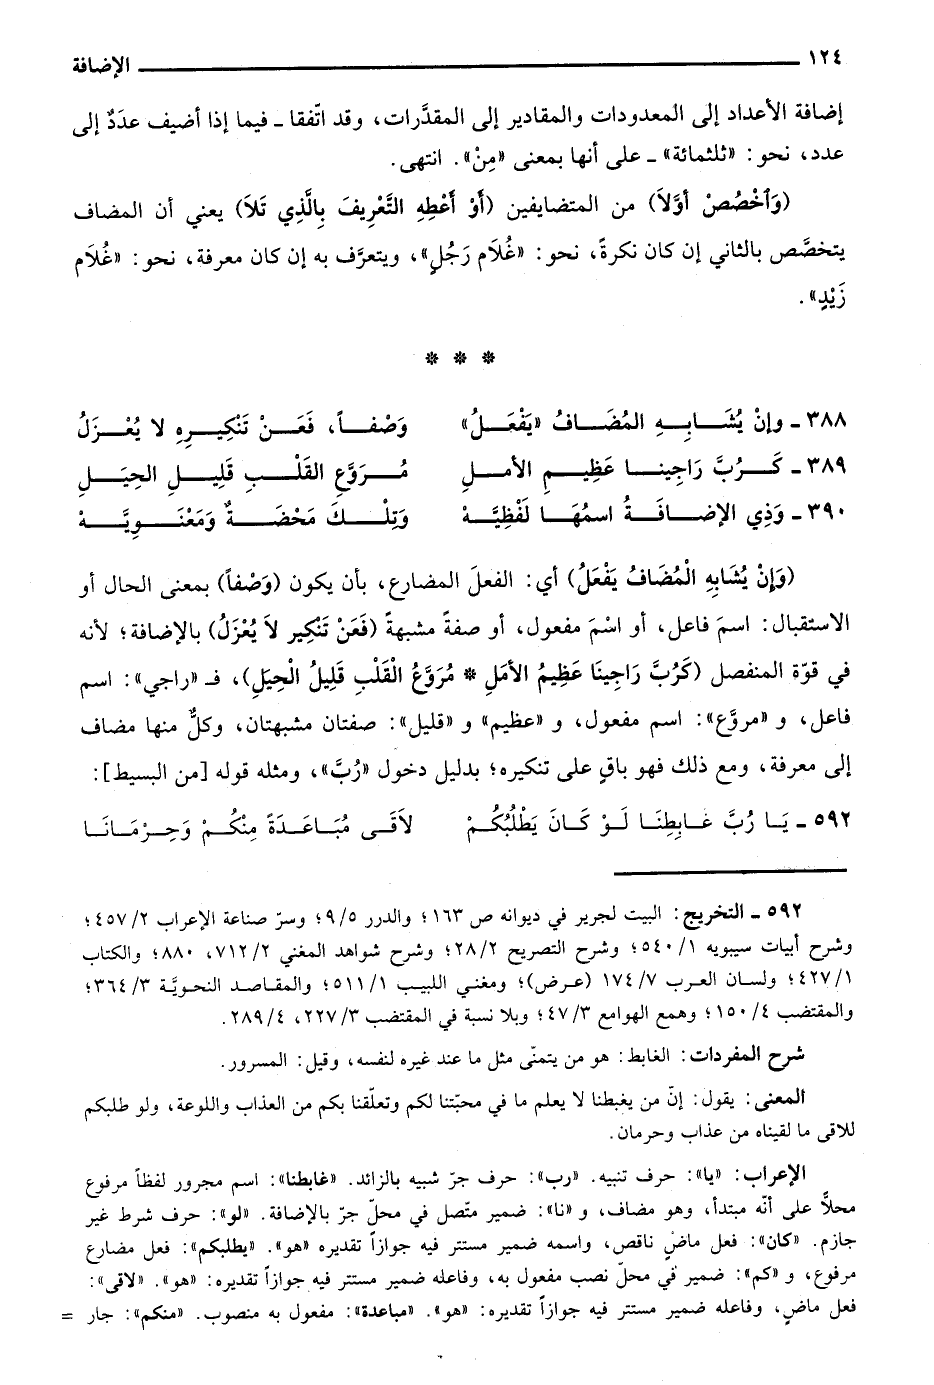 ١٢٤ الإضافة
إضافة الأعداد إلى المعدودات والمقادير إلى المقدَّرات، وقد اتّفقا ـ فيما إذا أضيف عدَدٌ إلى
عدد، نحو: «ثلثمائة» ـ على أنها بمعنى «مِنْ». انتهى.
(وَٱخْصُصْ أوَّلاَ) من المتضايفين (أَوْ أَعْطِهِ التَّعْرِيفَ بِالَّذِي تَلاَ) يعني أن المضاف
يتخصَّص بالثاني إن كان نكرةً، نحو: «غُلَام رَجُلٍ»، ويتعرَّف به إن كان معرفة، نحو: «غُلَام
زَيْدٍ».
* * *
٣٨٨ ـ وإنْ يُشَــابِــهِ المُضَــافُ «يَفْعَـلُ» وَصْفــاً، فَعَــنْ تَنْكِيــرِهِ لا يُعْــزَلُ
٣٨٩ ـ كَــرُبَّ رَاجِينــا عَظِيــمِ الأمــلِ مُــرَوَّعِ القَلْــبِ قَلِيــلِ الحِيَــلِ
٣٩٠ ـ وَذِي الإضَــافَــةُ اسمُهَــا لَفْظِيَّــهْ وَتِلْــكَ مَحْضَــةٌ وَمَعْنَــوِيَّــهْ
(وَإنْ يُشَابِهِ الْمُضَافُ يَفْعَلُ) أي: الفعلَ المضارع، بأن يكون (وَصْفاً) بمعنى الحال أو
الاستقبال: اسمَ فاعل، أو اسْمَ مفعول، أو صفةً مشبهةً (فَعَنْ تَنْكِيرِ لاَ يُعْزَلُ) بالإضافة؛ لأنه
في قوّة المنفصل (كَرُبَّ رَاجِينَا عَظِيمُ الأمَلِ * مُرَوَّعُ الْقَلْبِ قَلِيلُ الْحِيَلِ)، فـ «راجي»: اسم
فاعل، و «مروَّع»: اسم مفعول، و «عظيم» و «قليل»: صفتان مشبهتان، وكلٌّ منها مضاف
إلى معرفة، ومع ذلك فهو باقٍ على تنكيره؛ بدليل دخول «رُبَّ»، ومثله قوله [من البسيط]:
٥٩٢ ـ يَــا رُبَّ غَــابِطِنَــا لَــوْ كَــانَ يَطْلُبُكُــمْ لاَقَــى مُبَــاعَــدَةً مِنْكُــمْ وَحِــرْمَــانَــا
٥٩٢ ـ التخريج: البيت لجرير في ديوانه ص ١٦٣؛ والدرر ٩/٥؛ وسرّ صناعة الإعراب ٤٥٧/٢؛
وشرح أبيات سيبويه ٥٤٠/١؛ وشرح التصريح ٢٨/٢؛ وشرح شواهد المغني ٧١٢/٢، ٨٨٠؛ والكتاب
٤٢٧/١؛ ولسان العرب ١٧٤/٧ (عرض)؛ ومغني اللبيب ٥١١/١؛ والمقاصد النحويَّة ٣٦٤/٣؛
والمقتضب ١٥٠/٤؛ وهمع الهوامع ٤٧/٣؛ وبلا نسبة في المقتضب ٢٢٧/٣، ٢٨٩/٤.
شرح المفردات: الغابط: هو من يتمنّى مثل ما عند غيره لنفسه، وقيل: المسرور.
المعنى: يقول: إنّ من يغبطنا لا يعلم ما في محبّتنا لكم وتعلّقنا بكم من العذاب واللوعة، ولو طلبكم
للاقى ما لقيناه من عذاب وحرمان.
الإعراب: «يا»: حرف تنبيه. «رب»: حرف جرّ شبيه بالزائد. «غابطنا»: اسم مجرور لفظاً مرفوع
محلاًّ على أنّه مبتدأ، وهو مضاف، و «نا»: ضمير متّصل في محلّ جرّ بالإضافة. «لو»: حرف شرط غير
جازم. «كان»: فعل ماضٍ ناقص، واسمه ضمير مستتر فيه جوازاً تقديره «هو». «يطلبكم»: فعل مضارع
مرفوع، و «كم»: ضمير في محلّ نصب مفعول به، وفاعله ضمير مستتر فيه جوازاً تقديره: «هو». «لاقى»:
فعل ماضٍ، وفاعله ضمير مستتر فيه جوازاً تقديره: «هو». «مباعدة»: مفعول به منصوب. «منكم»: جار =